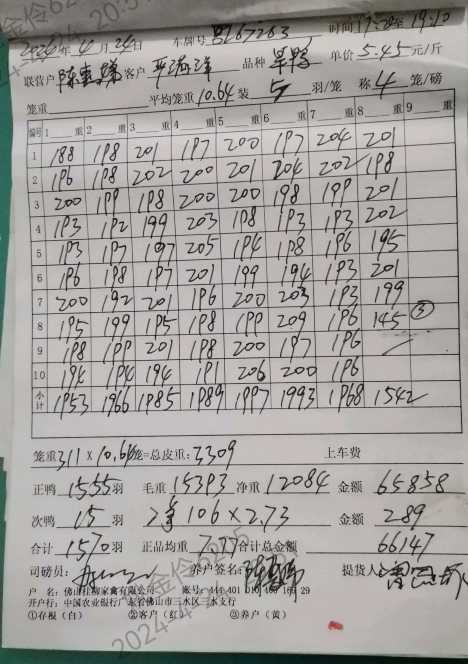 2024年4月24日 车牌号 时间17:20至19:10
联营户 客户 品种 单价5.45元/斤
笼重 平均笼重10.64 装5羽/笼 称4笼/磅
编号 1 重 2 重 3 重 4 重 5 重 6 重 7 重 8 重 9 重
1 188 198 201 197 200 197 204 201
2 196 198 202 200 201 204 202 198
3 200 199 198 200 200 198 199 201
4 193 192 199 203 198 193 193 202
5 193 197 197 205 194 198 196 195
6 196 198 197 201 199 194 193 201
7 200 192 201 196 200 203 193 199
8 195 199 195 198 199 209 196 145 ③
9 198 199 201 198 200 197 196
10 194 194 194 191 206 200 196
小计 1953 1966 1985 1989 1997 1993 1968 1542
笼重311×10.64笼=总皮重:3309 上车费
正鸭1555羽 毛重15393 净重12084 金额65858
次鸭15羽 净106×2.73 金额289
合计1570羽 正品均重7.77 合计总金额66147
司磅员: 养户签名: 提货人:
户 名:佛山 家禽有限公司 账号:
开户行:中国农业银行广东省佛山市三水区三水支行
①存根(白) ②客户(红) ③养户(黄)